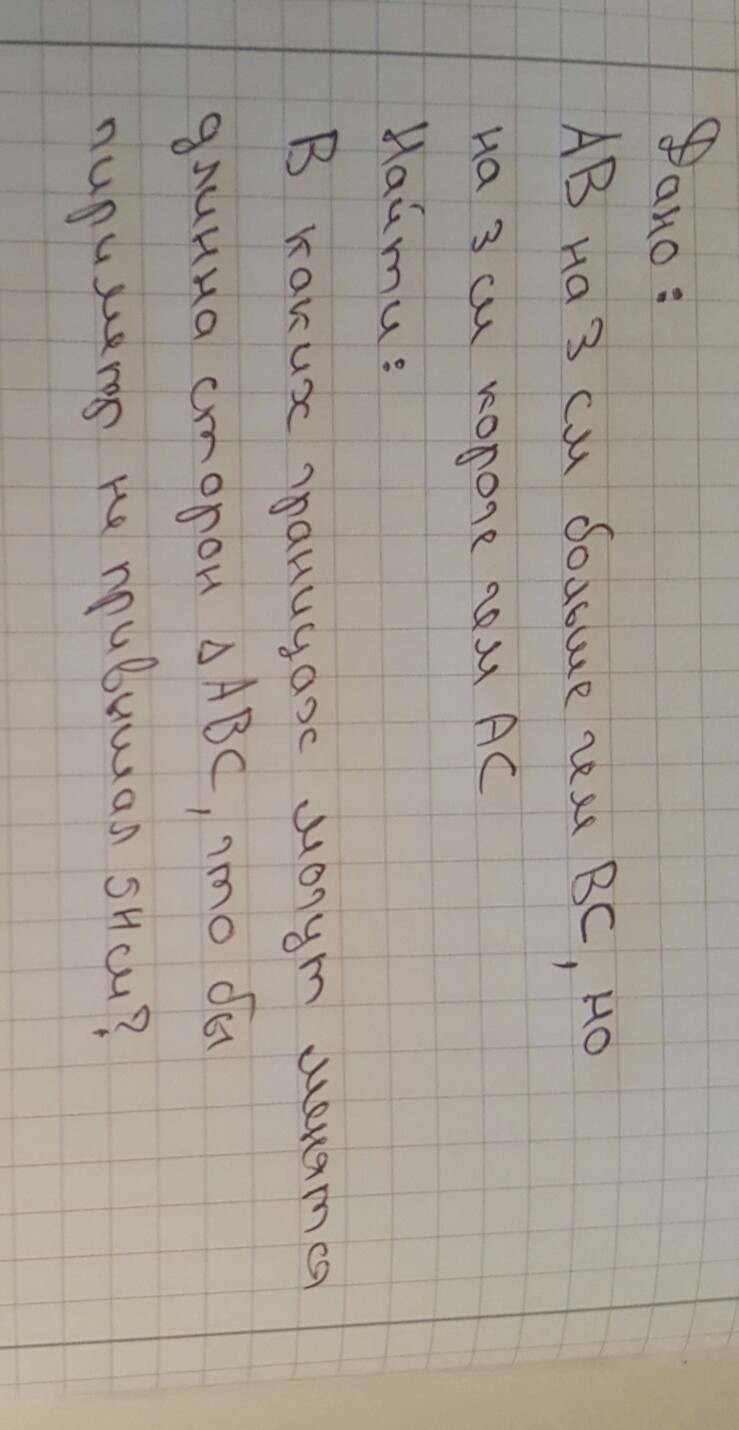 Дано:
АВ на 3 см больше чем ВС, но
на 3 см короче чем АС
Найти:
В каких границах могут менятся
длинна сторон △АВС, что бы
пириметр не привышал 54 см?